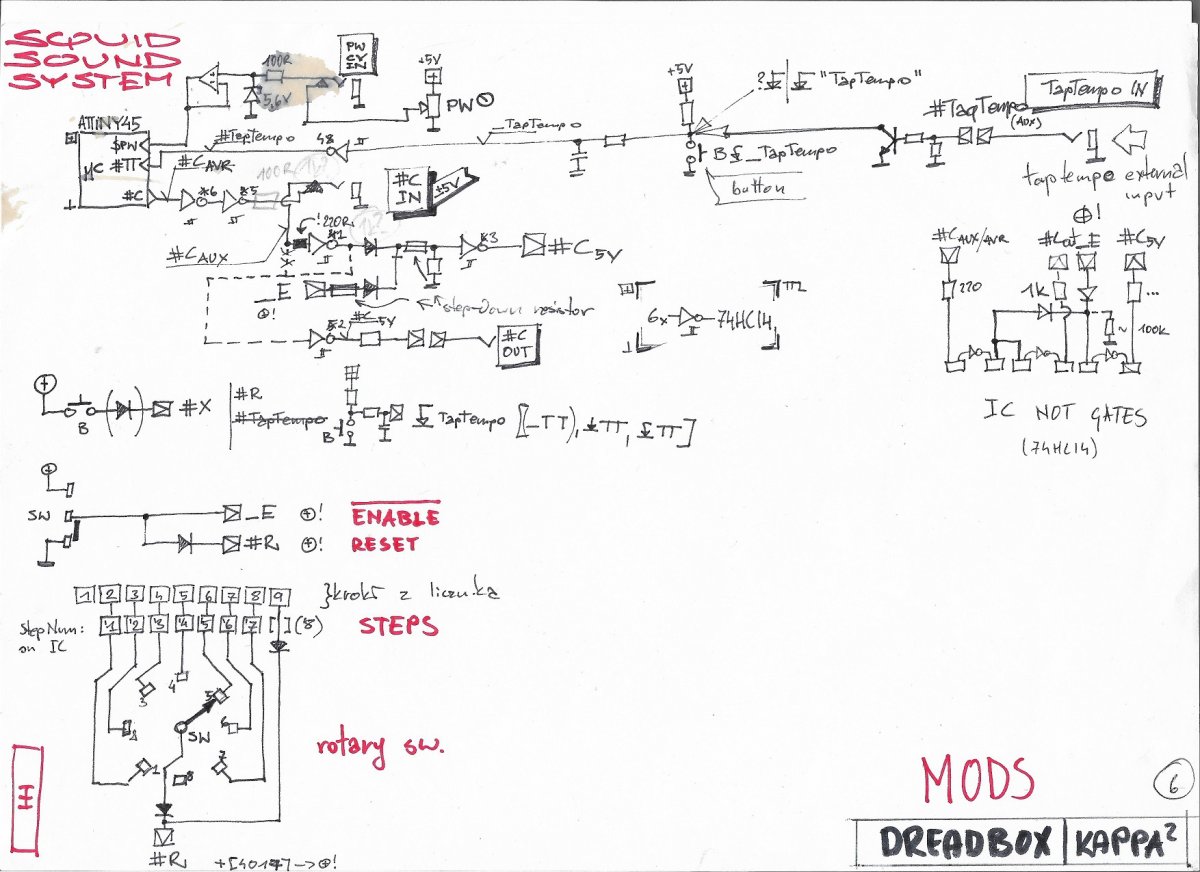 SQUID
SOUND
SYSTEM
100R
PW
CV
IN
+5V
5,6V
PW
ATTINY45
#TapTempo
48
TapTempo
+5V
"TapTempo"
#TapTempo
(AUX)
TapTempo IN
$PW
#TT
µC
#C
#C AVR
100R
*6
*5
#C
IN
+5V
B
_TapTempo
button
tap tempo external
input
#C AUX
! 220R
*1
*3
#C 5V
_E
!
step-down resistor
*2
#C 5V
#C
OUT
6x
74HC14
#C AUX/AVR
#Cout_E
!
#C5V
220
1k
...
~ 100k
IC NOT GATES
(74HC14)
+
B
#X
#R
#TapTempo
B
TapTempo [_TT), TT, TT]
+
SW
_E
+!
ENABLE
#R
+!
RESET
1 2 3 4 5 6 7 8 9
} kroki z licznika
StepNum:
on IC
'1 '2 '3 '4 '5 '6 '7 [ ] ('8)
STEPS
3
4
5
6
SW
1
8
7
rotary sw.
#R
+[4017] -> !
MODS
6
DREADBOX | KAPPA²